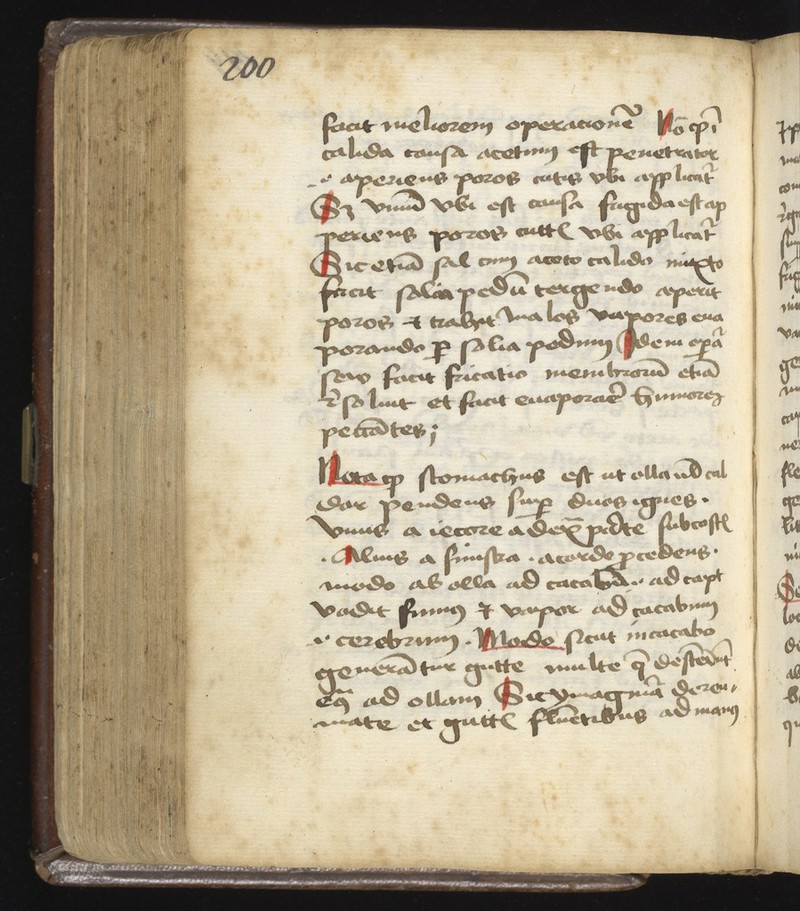 200
facit meliorem operacionē Nō qꝫ ī
calida causa acetum est penetrator
·i· aperiens poros cutis vbi applicat᷑
Sꝫ vinū vbi est causa frigida est ap
periens poros cutꝭ vbi applicat᷑
Sic etiā sal cum aceto calido mixto
facit solia pedū tergendo aperit
poros ⁊ trahit malos vapores eua
porando ꝑ solia pedum Idem oꝑa
facit fricatio membrorū etiā
r̄soluit et facit euaporar̄ humoreꝫ
peccātes;
Nota qꝫ stomachus est ut olla
dar pendens suꝑ duos ignes ·
vnus a iecore a dext̄ pa͛te sub costꝭ
· Alius a sinistra · a corde ꝓcedens ·
modo ab olla ad cacabū ·i· ad capt
vadit fumus ⁊ vapor ad cacabum
·i· cerebrum · Modo sicut in cacabo
generātur gutte multe q̄ descēdūt
ad ollam Sic ymaginā de reu
mate et guttꝭ fluētibus ad manꝰ